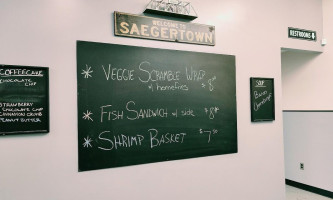 WELCOME TO
SAEGERTOWN
RESTROOMS
COFFEECAKE
CHOCOLATE
CHIP
STRAWBERRY
CHOCOLATE CHIP
CINNAMON CRUMB
PEANUT BUTTER
* VEGGIE SCRAMBLE WRAP
w/ homefries
* FISH SANDWICH w/ side
* SHRIMP BASKET